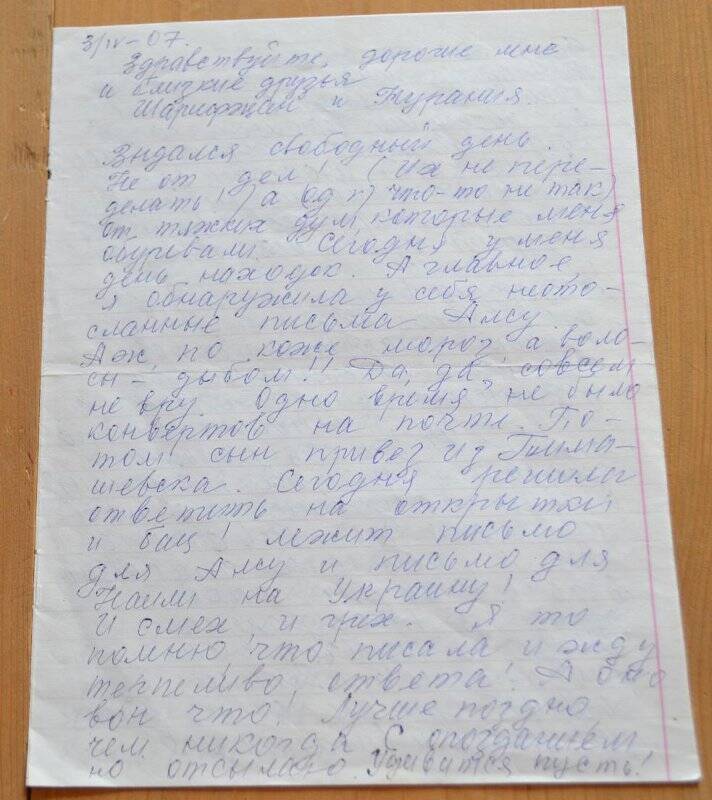 3/IV-07.
Здравствуйте, дорогие мне
и близкие друзья
Шарифжан и Турания.
Выдался свободный день.
Не от дел! (Их не пере-
делать!) а что-то не так)
от тяжких дум, которые меня
обуревали. Сегодня у меня
день находок. А главное,
я обнаружила у себя неото-
сланные письма Алсу.
Аж по коже мороз, а воло-
сы - дыбом!! Да, да совсем
не вру. Одно время не было
конвертов на почте. По-
том сын привез из Тима-
шевска. Сегодня решила
ответить на открытки
и бац! лежит письмо
для Алсу и письмо для
Наили на Украину!
И смех и грех. Я то
помню, что писала и жду
терпеливо ответа! А оно
вон что! Лучше поздно
чем никогда. С опозданием,
но отсылаю. Удивится пусть!